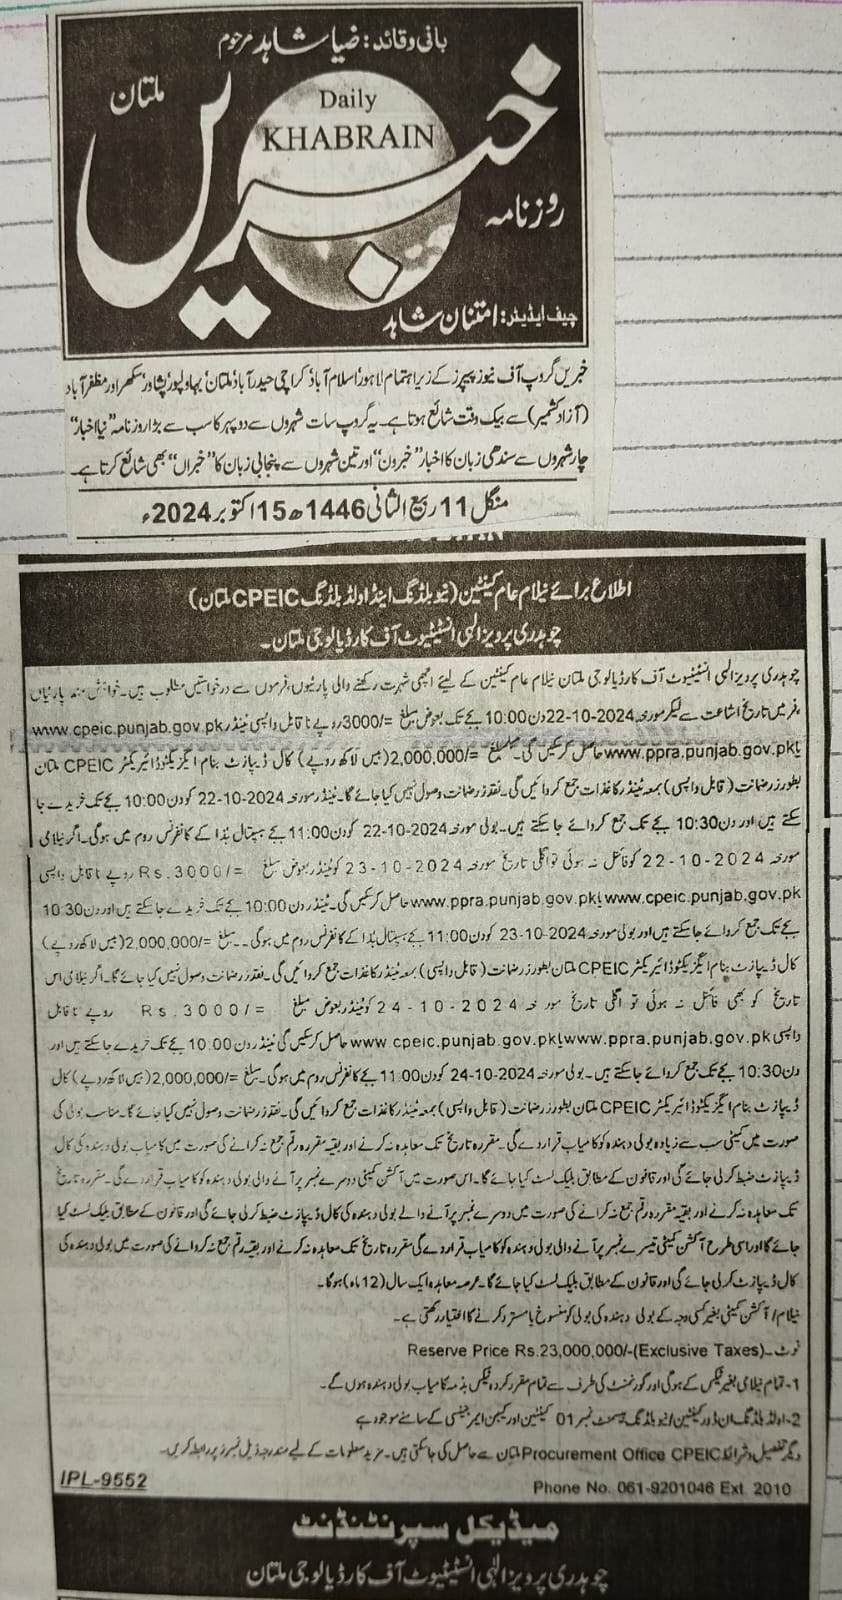 بانی وقائد: ضیا شاہد مرحوم
ملتان
Daily
KHABRAIN
خبریں
روزنامہ
چیف ایڈیٹر: امتنان شاہد
خبریں گروپ آف نیوز پیپرز کے زیر اہتمام لاہور، اسلام آباد، کراچی، حیدر آباد، ملتان، بہاولپور، پشاور، سکھر اور مظفر آباد
(آزاد کشمیر) سے بیک وقت شائع ہوتا ہے۔ یہ گروپ سات شہروں سے دوپہر کا سب سے بڑا روزنامہ "نیا اخبار"
چار شہروں سے سندھی زبان کا اخبار "خبرون" اور تین شہروں سے پنجابی زبان کا "خبراں" بھی شائع کرتا ہے۔
منگل 11 ربیع الثانی 1446ھ 15 اکتوبر 2024ء
اطلاع برائے نیلام عام کینٹین (نیو بلڈنگ اینڈ اولڈ بلڈنگ CPEIC ملتان)
چوہدری پرویز الہی انسٹیٹیوٹ آف کارڈیالوجی ملتان۔
چوہدری پرویز الہی انسٹیٹیوٹ آف کارڈیالوجی ملتان نیلام عام کینٹین کے لیے اچھی شہرت رکھنے والی پارٹیوں، فرموں سے درخواستیں مطلوب ہیں۔ خواہش مند پارٹیاں
، فرمیں تاریخ اشاعت سے لیکر مورخہ 22-10-2024 دن 10:00 بجے تک بعوض مبلغ =/3000 روپے نا قابل واپسی ٹینڈر www.cpeic.punjab.gov.pk
یا www.ppra.punjab.gov.pk حاصل کر سکیں گی۔ مبلغ =/2,000,000 (بیس لاکھ روپے) کال ڈیپازٹ بنام ایگزیکٹو ڈائیریکٹر CPEIC ملتان
بطور زر ضمانت (قابل واپسی) بمعہ ٹینڈر کاغذات جمع کروائیں گی۔ نقد زر ضمانت وصول نہیں کیا جائے گا۔ ٹینڈر مورخہ 22-10-2024 کو دن 10:00 بجے تک خریدے جا
سکتے ہیں اور دن 10:30 بجے تک جمع کروائے جا سکتے ہیں۔ بولی مورخہ 22-10-2024 کو دن 11:00 بجے ہسپتال ہذا کے کانفرنس روم میں ہوگی۔ اگر نیلامی
مورخہ 22-10-2024 کو فائنل نہ ہوئی تو اگلی تاریخ مورخہ 23-10-2024 کو ٹینڈر بعوض مبلغ =/Rs.3000 روپے نا قابل واپسی
www.cpeic.punjab.gov.pk یا www.ppra.punjab.gov.pk حاصل کر سکیں گی۔ ٹینڈر دن 10:00 بجے تک خریدے جا سکتے ہیں اور دن 10:30
بجے تک جمع کروائے جا سکتے ہیں اور بولی مورخہ 23-10-2024 کو دن 11:00 بجے ہسپتال ہذا کے کانفرنس روم میں ہوگی۔۔ مبلغ =/2,000,000 (بیس لاکھ روپے)
کال ڈیپازٹ بنام ایگزیکٹو ڈائیریکٹر CPEIC ملتان بطور زر ضمانت (قابل واپسی) بمعہ ٹینڈر کاغذات جمع کروائیں گی۔ نقد زر ضمانت وصول نہیں کیا جائے گا۔ اگر نیلامی اس
تاریخ کو بھی فائنل نہ ہوئی تو اگلی تاریخ مورخہ 24-10-2024 کو ٹینڈر بعوض مبلغ =/Rs.3000 روپے نا قابل
واپسی www.ppra.punjab.gov.pk یا www.cpeic.punjab.gov.pk حاصل کر سکیں گی ٹینڈر دن 10:00 بجے تک خریدے جا سکتے ہیں اور
دن 10:30 بجے تک جمع کروائے جا سکتے ہیں۔ بولی مورخہ 24-10-2024 کو دن 11:00 بجے کانفرنس روم میں ہوگی۔ مبلغ =/2,000,000 (بیس لاکھ روپے) کال
ڈیپازٹ بنام ایگزیکٹو ڈائیریکٹر CPEIC ملتان بطور زر ضمانت (قابل واپسی) بمعہ ٹینڈر کاغذات جمع کروائیں گی۔ نقد زر ضمانت وصول نہیں کیا جائے گا۔ مناسب بولی کی
صورت میں کمیٹی سب سے زیادہ بولی دہندہ کو کامیاب قرار دے گی۔ مقررہ تاریخ تک معاہدہ نہ کرنے اور بقیہ مقررہ رقم جمع نہ کرانے کی صورت میں کامیاب بولی دہندہ کی کال
ڈیپازٹ ضبط کر لی جائے گی اور قانون کے مطابق بلیک لسٹ کیا جائے گا۔ اس صورت میں آکشن کمیٹی دوسرے نمبر پر آنے والی بولی دہندہ کو کامیاب قرار دے گی۔ مقررہ تاریخ
تک معاہدہ نہ کرنے اور بقیہ مقررہ رقم جمع نہ کرانے کی صورت میں دوسرے نمبر پر آنے والے بولی دہندہ کی کال ڈیپازٹ ضبط کر لی جائے گی اور قانون کے مطابق بلیک لسٹ کیا
جائے گا اور اسی طرح آکشن کمیٹی تیسرے نمبر پر آنے والی بولی دہندہ کو کامیاب قرار دے گی مقررہ تاریخ تک معاہدہ نہ کرنے اور بقیہ رقم جمع نہ کروانے کی صورت میں بولی دہندہ کی
کال ڈیپازٹ کر لی جائے گی اور قانون کے مطابق بلیک لسٹ کیا جائے گا۔ عرصہ معاہدہ ایک سال (12 ماہ) ہوگا۔
نیلام/ آکشن کمیٹی بغیر کسی وجہ کے بولی دہندہ کی بولی کو منسوخ یا مسترد کرنے کا اختیار رکھتی ہے۔
نوٹ۔ Reserve Price Rs.23,000,000/-(Exclusive Taxes)
1- تمام نیلامی بغیر ٹیکس کے ہوگی اور گورنمنٹ کی طرف سے تمام مقرر کردہ ٹیکس بذمہ کامیاب بولی دہندہ ہوں گے۔
2- اولڈ بلڈنگ ان ڈور کینٹین / نیو بلڈنگ بیسمنٹ نمبر 01 کینٹین اور کیبن ایمرجنسی کے سامنے موجود ہے
دیگر تفصیل و شرائط Procurement Office CPEIC ملتان سے حاصل کی جا سکتی ہیں۔ مزید معلومات کے لیے مندرجہ ذیل نمبرز پر رابطہ کریں۔
Phone No. 061-9201046 Ext. 2010
IPL-9552
میڈیکل سپرنٹنڈنٹ
چوہدری پرویز الٰہی انسٹیٹیوٹ آف کارڈیالوجی ملتان